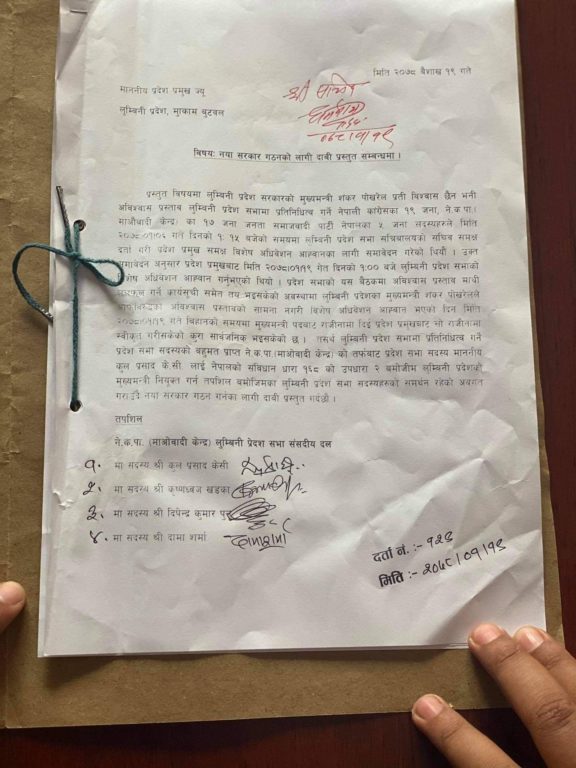 मिति २०७८ बैशाख १९ गते
माननीय प्रदेश प्रमुख ज्यू
लुम्बिनी प्रदेश, मुकाम बुटवल
श्री सचिव
०६८।०१।१९
विषय: नया सरकार गठनको लागी दावी प्रस्तुत सम्बन्धमा ।
प्रस्तुत विषयमा लुम्बिनी प्रदेश सरकारको मुख्यमन्त्री शंकर पोखरेल प्रती विश्वास छैन भनी
अविश्वास प्रस्ताव लुम्बिनी प्रदेश सभामा प्रतिनिधित्व गर्ने नेपाली कांग्रेसका १९ जना, ने.क.पा.(
माओवादी केन्द्र) का १७ जना जनता समाजवादी पार्टी नेपालका ५ जना सदस्यहरुले मिति
२०७८।०१।०६ गते दिनको १:१५ बजेको समयमा लुम्बिनी प्रदेश सभा सचिबालयको सचिव समक्ष
दर्ता गरी प्रदेश प्रमुख समक्ष विशेष अधिवेशन आह्वानका लागी समावेदन गरेको थियौं । उक्त
समावेदन अनुसार प्रदेश प्रमुखबाट मिति २०७८।०१।१९ गते दिनको १:०० बजे लुम्बिनी प्रदेश सभाको
विशेष अधिवेशन आह्वान गर्नुभएको थियो । प्रदेश सभाको यस बैठकमा अविश्वास प्रस्ताव माथी
गर्ने कार्यसुची समेत तय भइसकेको अवस्थामा लुम्बिनी प्रदेशका मुख्यमन्त्री शंकर पोखरेलले
अविश्वास प्रस्तावको सामना नगरी विशेष अधिवेशन आह्वान भएको दिन मिति
२०७८।०१।१९ गते बिहानको समयमा मुख्यमन्त्री पदबाट राजीनामा दिई प्रदेश प्रमुखबाट सो राजीनामा
स्वीकृत गरीसकेको कुरा सार्वजनिक भइसकेको छ । तसर्थ लुम्बिनी प्रदेश सभामा प्रतिनिधित्व गर्ने
प्रदेश सभा सदस्यको बहुमत प्राप्त ने.क.पा.(माओवादी केन्द्र) को तर्फबाट प्रदेश सभा सदस्य माननीय
कुल प्रसाद के.सी. लाई नेपालको संविधान धारा १६८ को उपधारा २ बमोजीम लुम्बिनी प्रदेशको
मुख्यमन्त्री नियुक्त गर्न तपशिल बमोजिमका लुम्बिनी प्रदेश सभा सदस्यहरुको समर्थन रहेको अवगत
गराउँदै नया सरकार गठन गर्नका लागी दावी प्रस्तुत गर्दछौं ।
तपशिल
ने.क.पा. (माओवादी केन्द्र) लुम्बिनी प्रदेश सभा संसदीय दल
१. मा सदस्य श्री कुल प्रसाद केसी
२. मा सदस्य श्री कृष्णध्वज खड्का
३. मा सदस्य श्री दिपेन्द्र कुमार पु
४. मा सदस्य श्री दामा शर्मा
दर्ता नं. :- १२९
मिति :- २०७८।०१।१९